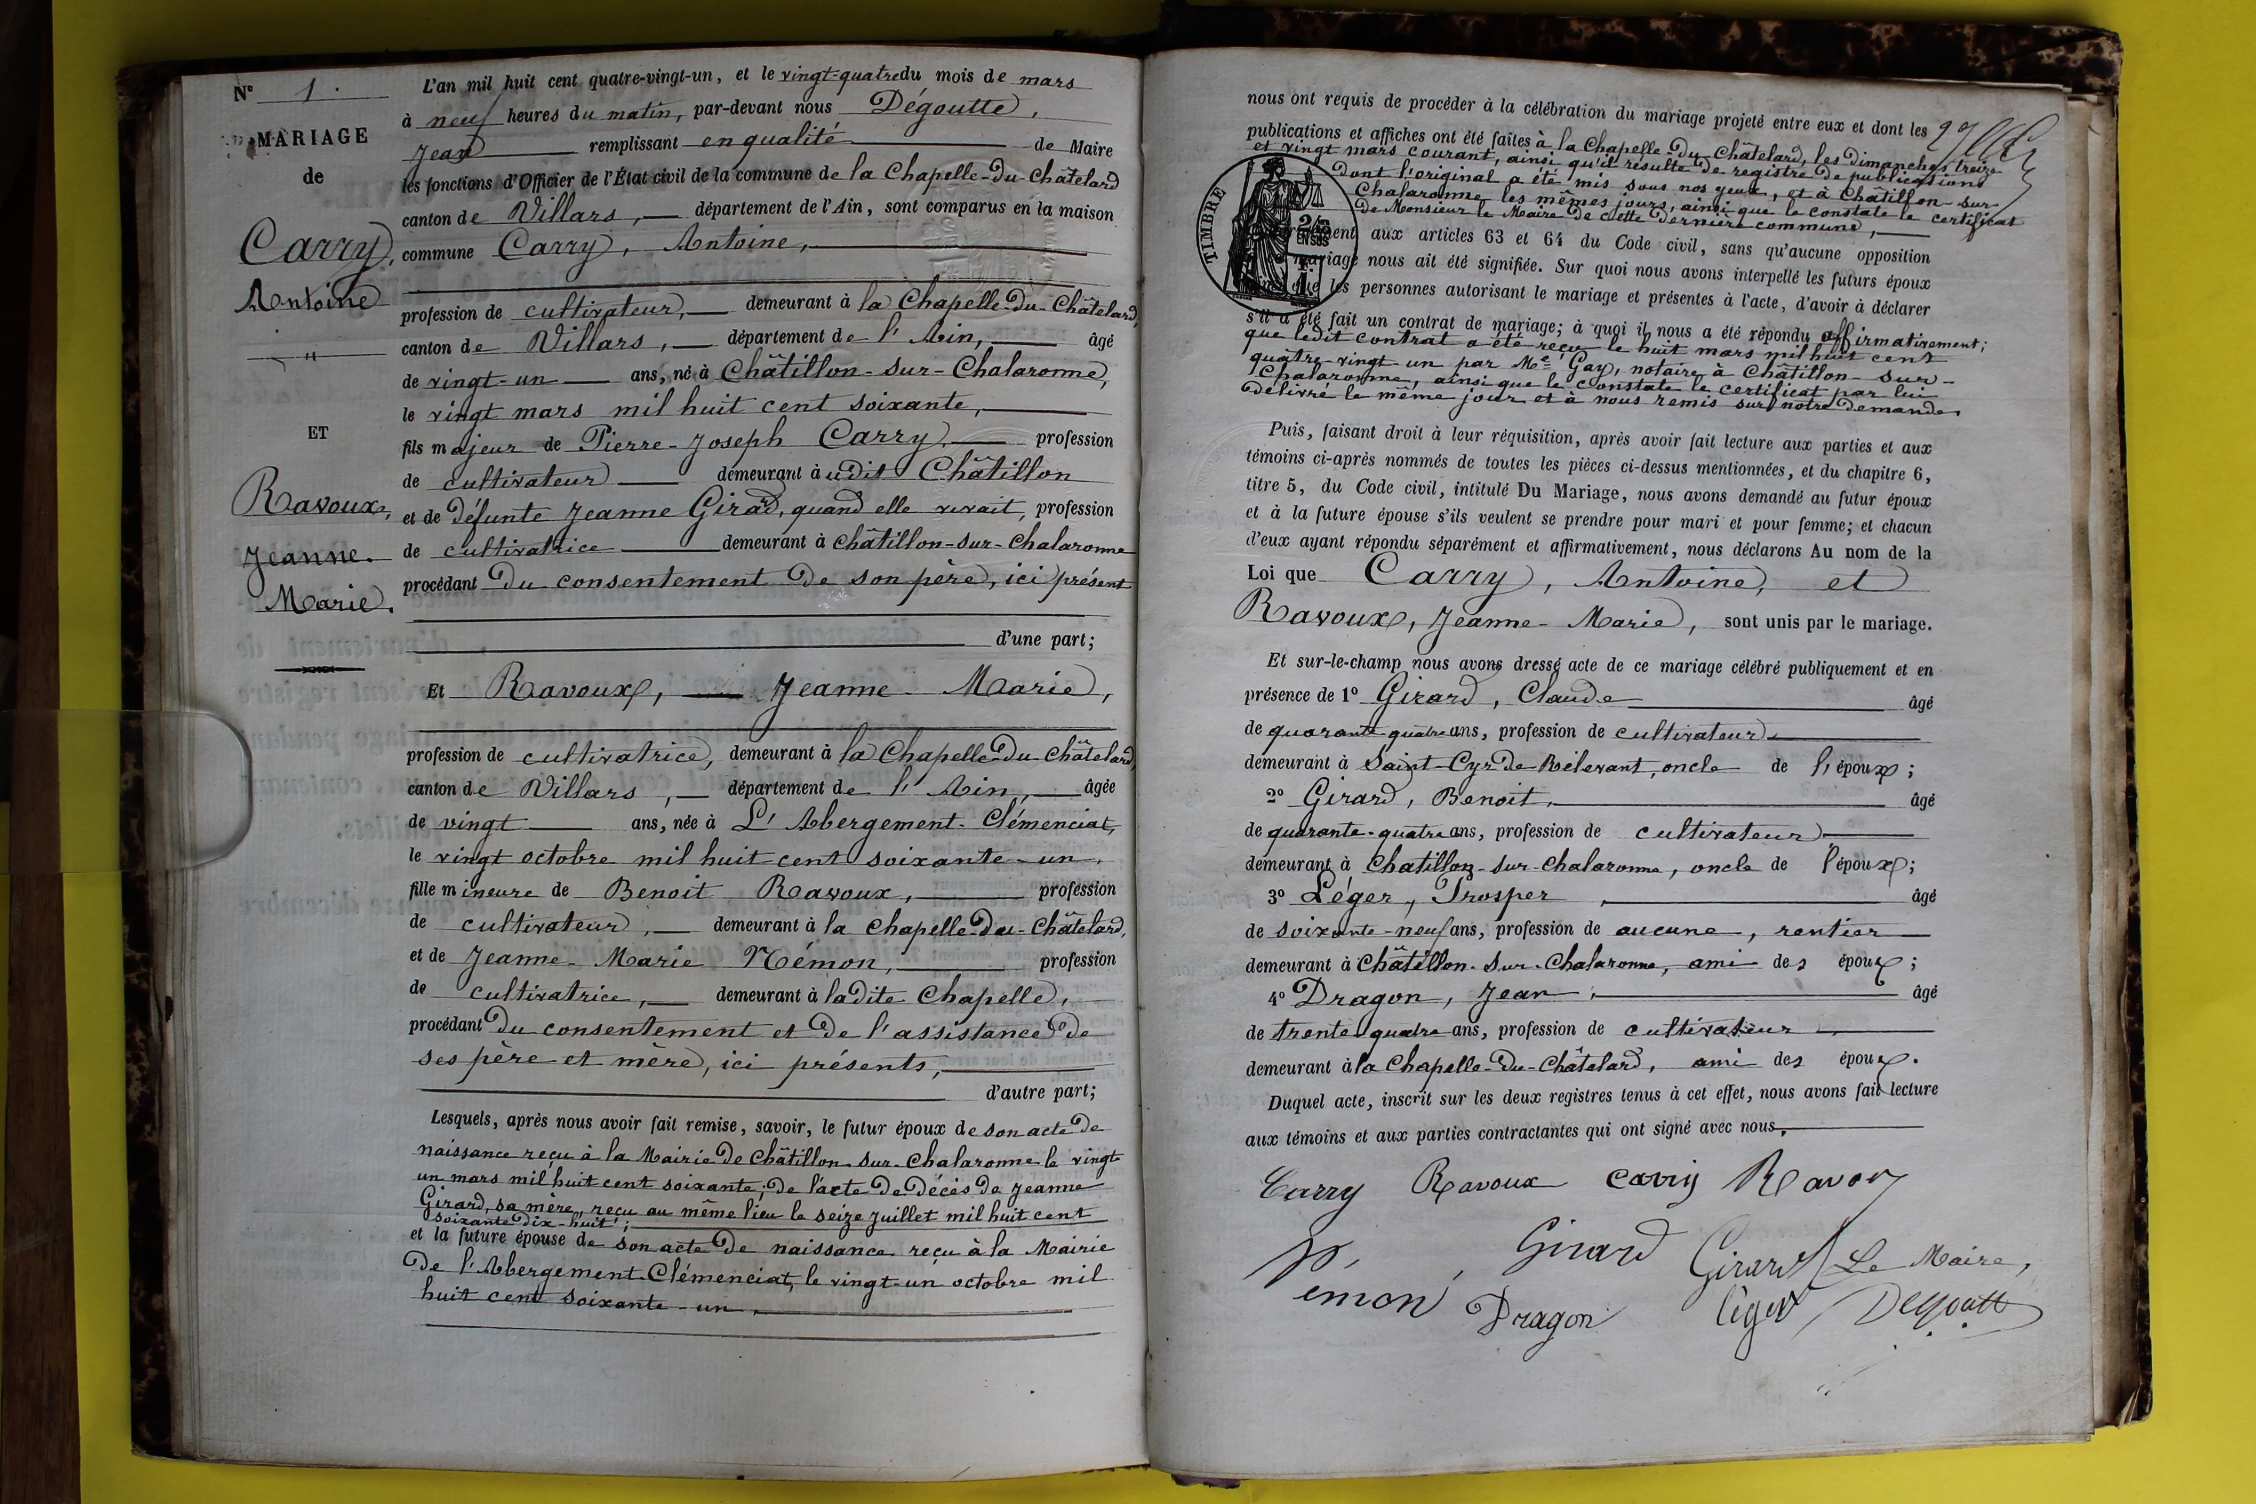 N° 1.
MARIAGE
de
Carry,
Antoine
"
ET
Ravoux,
Jeanne-
Marie.
L'an mil huit cent quatre-vingt-un, et le vingt-quatre du mois de mars
à neuf heures du matin, par-devant nous Dégoutte,
Jean remplissant en qualité de Maire
les fonctions d'Officier de l'État civil de la commune de la Chapelle-du-Châtelard
canton de Villars, département de l'Ain, sont comparus en la maison
commune Carry, Antoine,
profession de cultivateur, demeurant à la Chapelle-du-Châtelard,
canton de Villars, département de l'Ain, âgé
de vingt-un ans, né à Châtillon-sur-Chalaronne,
le vingt mars mil huit cent soixante,
fils majeur de Pierre-Joseph Carry profession
de cultivateur demeurant à udit Châtillon
et de défunte Jeanne Girard, quand elle vivait, profession
de cultivatrice demeurant à Châtillon-sur-Chalaronne
procédant du consentement de son père, ici présent
d'une part;
Et Ravoux, Jeanne-Marie,
profession de cultivatrice, demeurant à la Chapelle-du-Châtelard,
canton de Villars, département de l'Ain, âgée
de vingt ans, née à L'Abergement-Clémenciat,
le vingt octobre mil huit cent soixante-un,
fille mineure de Benoit Ravoux, profession
de cultivateur, demeurant à la Chapelle-du-Châtelard,
et de Jeanne-Marie Némon, profession
de cultivatrice, demeurant à ladite Chapelle,
procédant du consentement et de l'assistance de
ses père et mère, ici présents,
d'autre part;
Lesquels, après nous avoir fait remise, savoir, le futur époux de son acte de
naissance reçu à la Mairie de Châtillon-sur-Chalaronne le vingt
un mars mil huit cent soixante; de l'acte de décès de Jeanne
Girard, sa mère, reçu au même lieu le seize juillet mil huit cent
soixante dix-huit;
et la future épouse de son acte de naissance reçu à la Mairie
de l'Abergement-Clémenciat, le vingt-un octobre mil
huit cent soixante-un,
nous ont requis de procéder à la célébration du mariage projeté entre eux et dont les
publications et affiches ont été faites à la Chapelle-du-Châtelard, les dimanches treize
et vingt mars courant, ainsi qu'il résulte de registre de publications
dont l'original a été mis sous nos yeux, et à Châtillon-sur-
Chalaronne les mêmes jours, ainsi que le constate le certificat
de Monsieur le Maire de cette dernière commune,
TIMBRE
aux articles 63 et 64 du Code civil, sans qu'aucune opposition
mariage nous ait été signifiée. Sur quoi nous avons interpellé les futurs époux
que les personnes autorisant le mariage et présentes à l'acte, d'avoir à déclarer
s'il a été fait un contrat de mariage; à quoi il nous a été répondu affirmativement;
que ledit contrat a été reçu le huit mars mil huit cent
quatre-vingt un par Me Gay, notaire à Châtillon-sur-
Chalaronne, ainsi que le constate le certificat par lui
délivré le même jour et à nous remis sur notre demande.
Puis, faisant droit à leur réquisition, après avoir fait lecture aux parties et aux
témoins ci-après nommés de toutes les pièces ci-dessus mentionnées, et du chapitre 6,
titre 5, du Code civil, intitulé Du Mariage, nous avons demandé au futur époux
et à la future épouse s'ils veulent se prendre pour mari et pour femme; et chacun
d'eux ayant répondu séparément et affirmativement, nous déclarons Au nom de la
Loi que Carry, Antoine, et
Ravoux, Jeanne-Marie, sont unis par le mariage.
Et sur-le-champ nous avons dressé acte de ce mariage célébré publiquement et en
présence de 1° Girard, Claude âgé
de quarante quatre ans, profession de cultivateur
demeurant à Saint-Cyr-de Rélevant, oncle de l'époux;
2° Girard, Benoit, âgé
de quarante-quatre ans, profession de cultivateur
demeurant à Chatillon-sur-Chalaronne, oncle de l'époux;
3° Léger, Prosper, âgé
de soixante-neuf ans, profession de aucune, rentier
demeurant à Châtillon-sur-Chalaronne, ami des époux;
4° Dragon, Jean, âgé
de trente quatre ans, profession de cultivateur
demeurant à la Chapelle-du-Châtelard, ami des époux.
Duquel acte, inscrit sur les deux registres tenus à cet effet, nous avons fait lecture
aux témoins et aux parties contractantes qui ont signé avec nous.
Carry Ravoux Carry Ravoux
Némon Girard Girard Le Maire,
Dragon Léger Degoutte